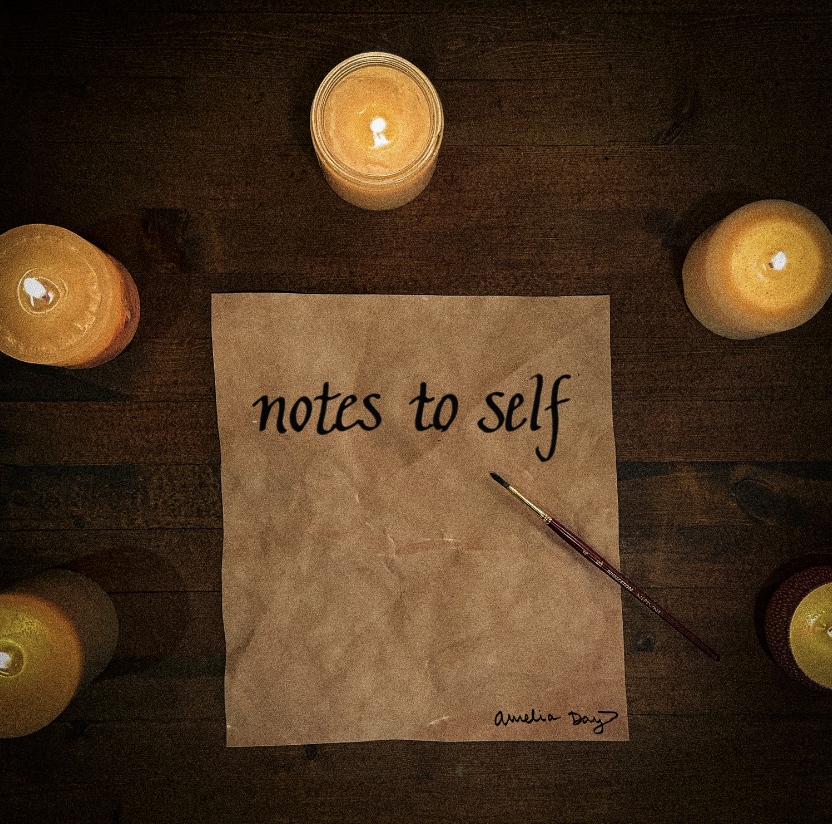 notes to self
Amelia Day